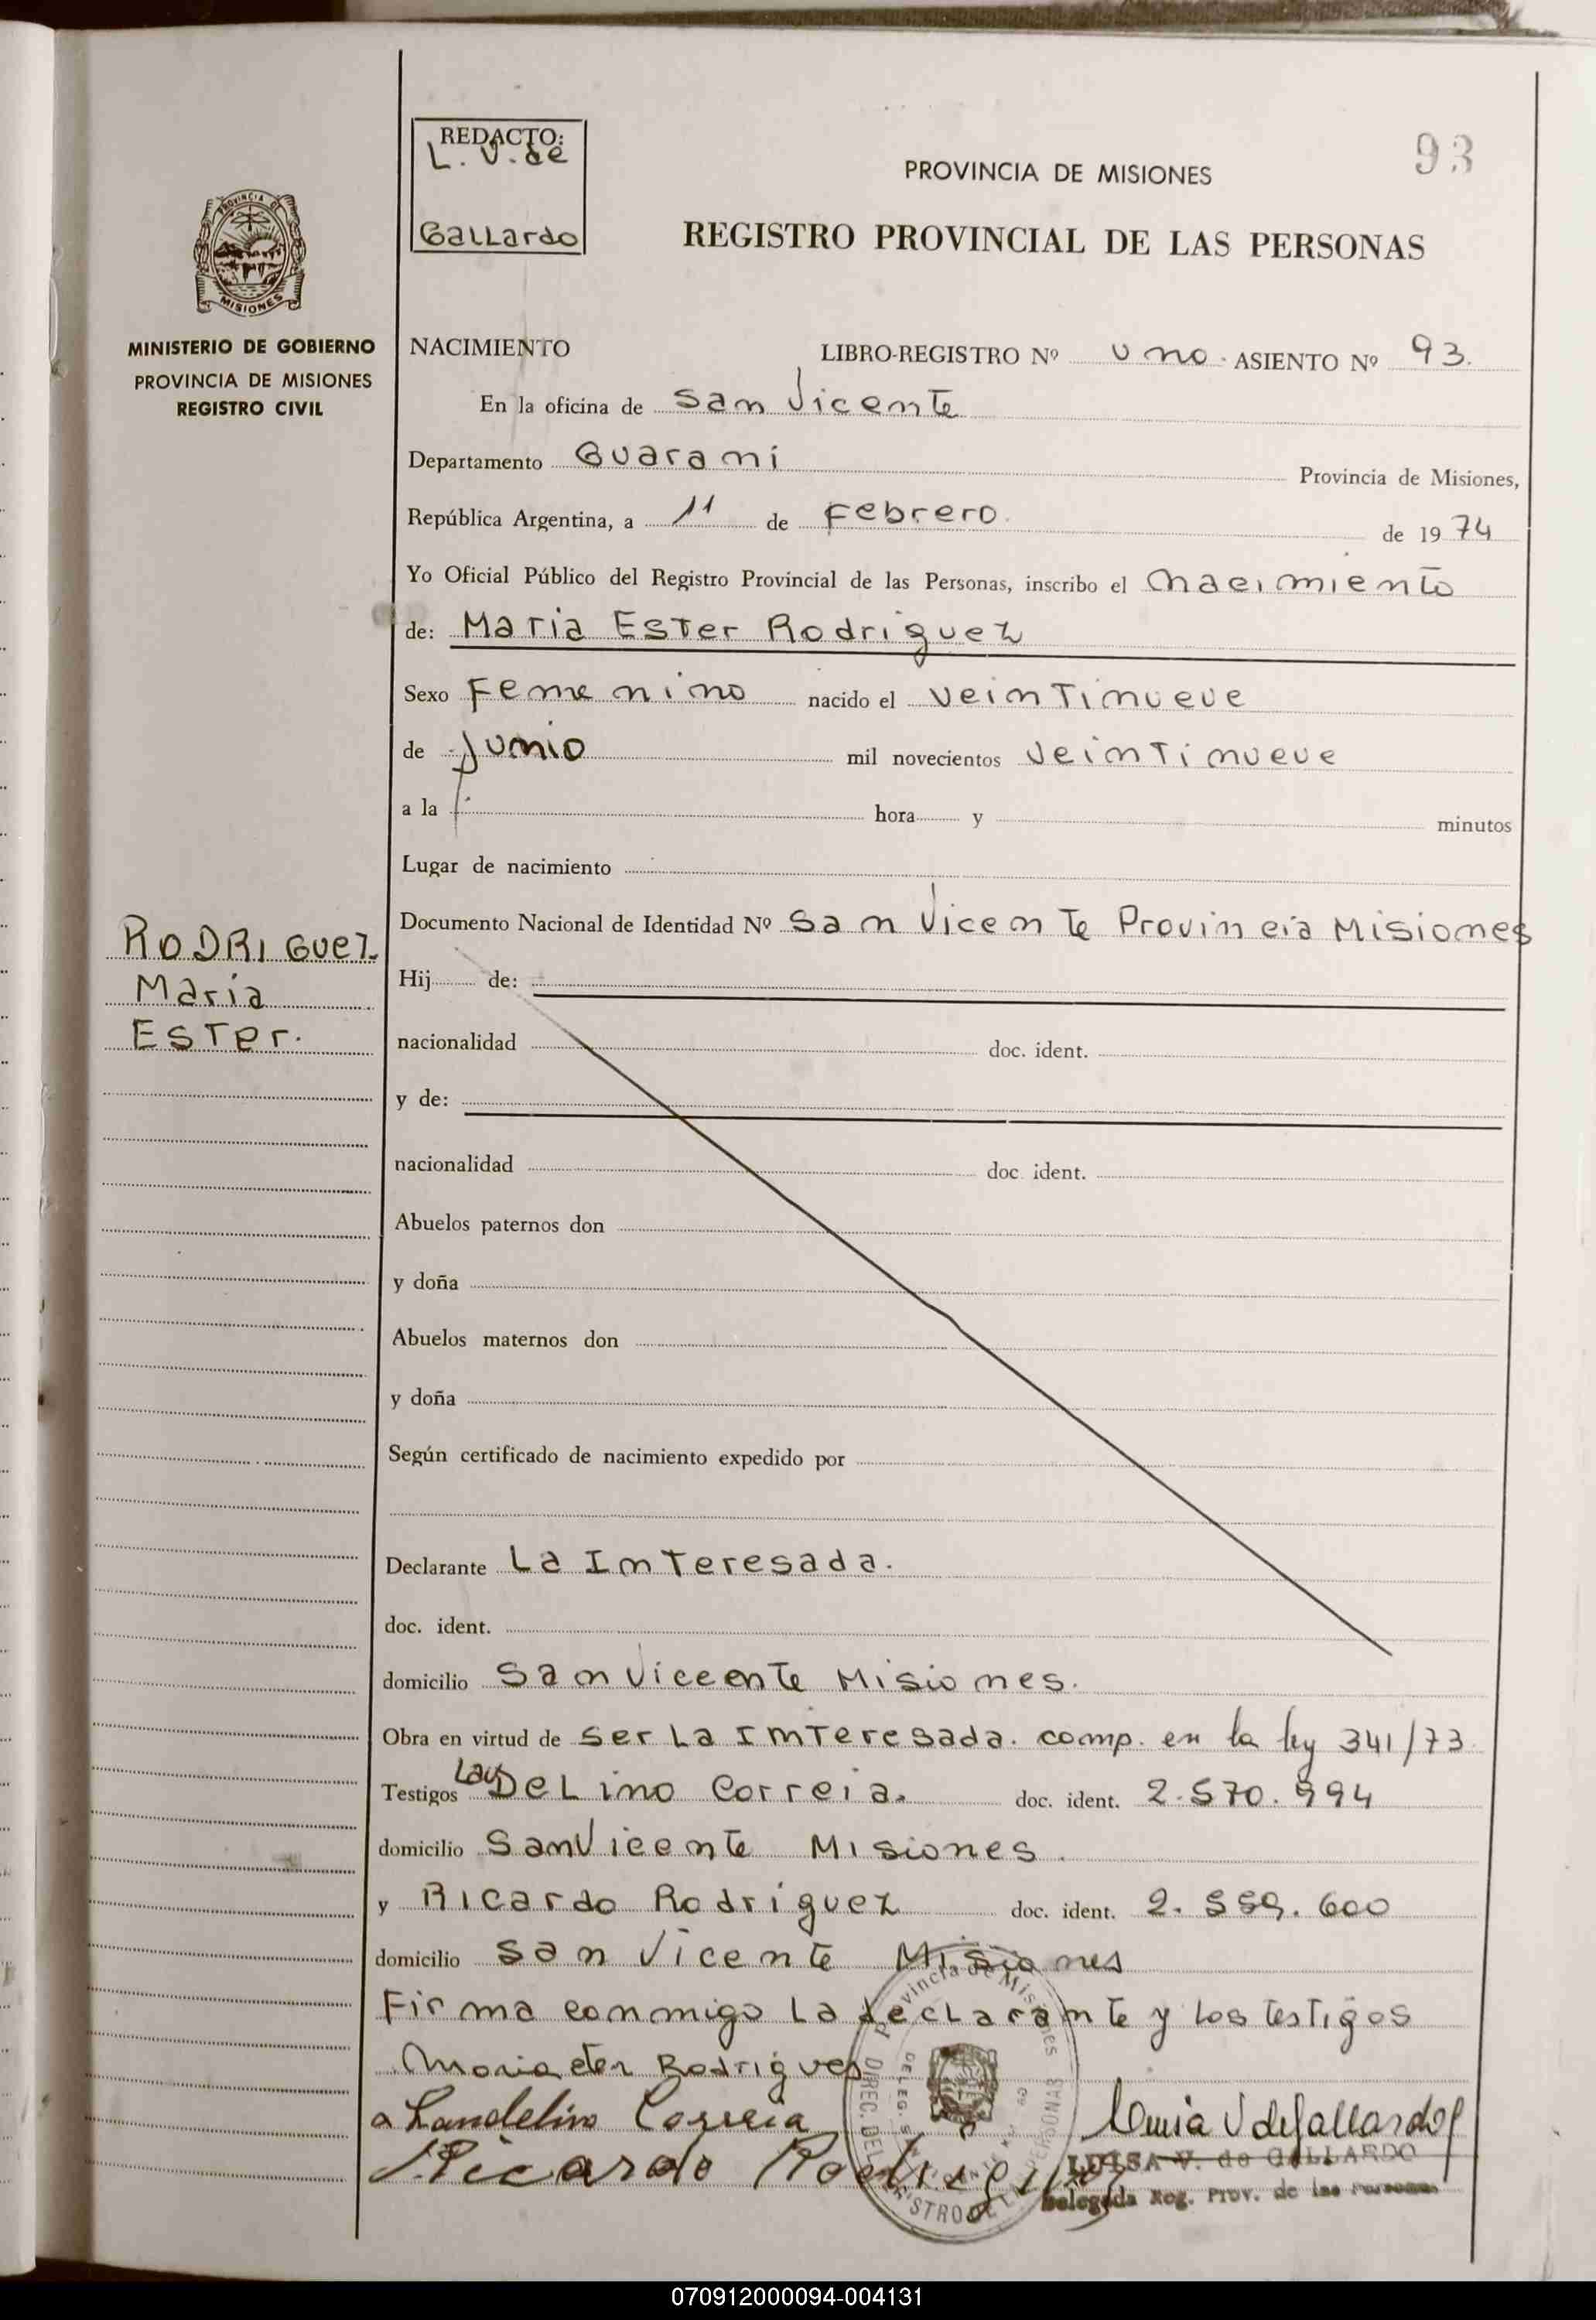 REDACTO:
L. V. de
Gallardo
93
PROVINCIA DE MISIONES
REGISTRO PROVINCIAL DE LAS PERSONAS
PROVINCIA DE
MISIONES
MINISTERIO DE GOBIERNO
PROVINCIA DE MISIONES
REGISTRO CIVIL
NACIMIENTO LIBRO-REGISTRO Nº uno. ASIENTO Nº 93.
En la oficina de San Vicente
Departamento Guarani Provincia de Misiones,
República Argentina, a 11 de Febrero. de 1974
Yo Oficial Público del Registro Provincial de las Personas, inscribo el nacimiento
de: Maria Ester Rodriguez
Sexo Femenino nacido el veintinueve
de Junio mil novecientos veintinueve
a la hora y minutos
Lugar de nacimiento
Documento Nacional de Identidad Nº San Vicente Provincia Misiones
RODRIGUEZ
Maria
Ester.
Hij de:
nacionalidad doc. ident.
y de:
nacionalidad doc. ident.
Abuelos paternos don
y doña
Abuelos maternos don
y doña
Según certificado de nacimiento expedido por
Declarante La Interesada.
doc. ident.
domicilio San Viceente Misiones.
Obra en virtud de ser La Interesada. comp. en la ley 341/73
Testigos Lau DeLino Correia. doc. ident. 2.570.994
domicilio San Vicente Misiones.
y Ricardo Rodriguez doc. ident. 2.559.600
domicilio San Vicente Misiones
Firma conmigo La declarante y los testigos
Maria ester Rodrigues
Landelino Correia
Ricardo Rodriguez
Luisa V de Gallardo
LUISA V. de GALLARDO
Delegada Reg. Prov. de las Personas
Provincia de Misiones
070912000094-004131